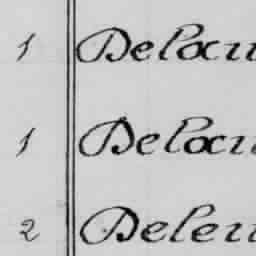 1 Delacu
1 Delacu
2 Deleu